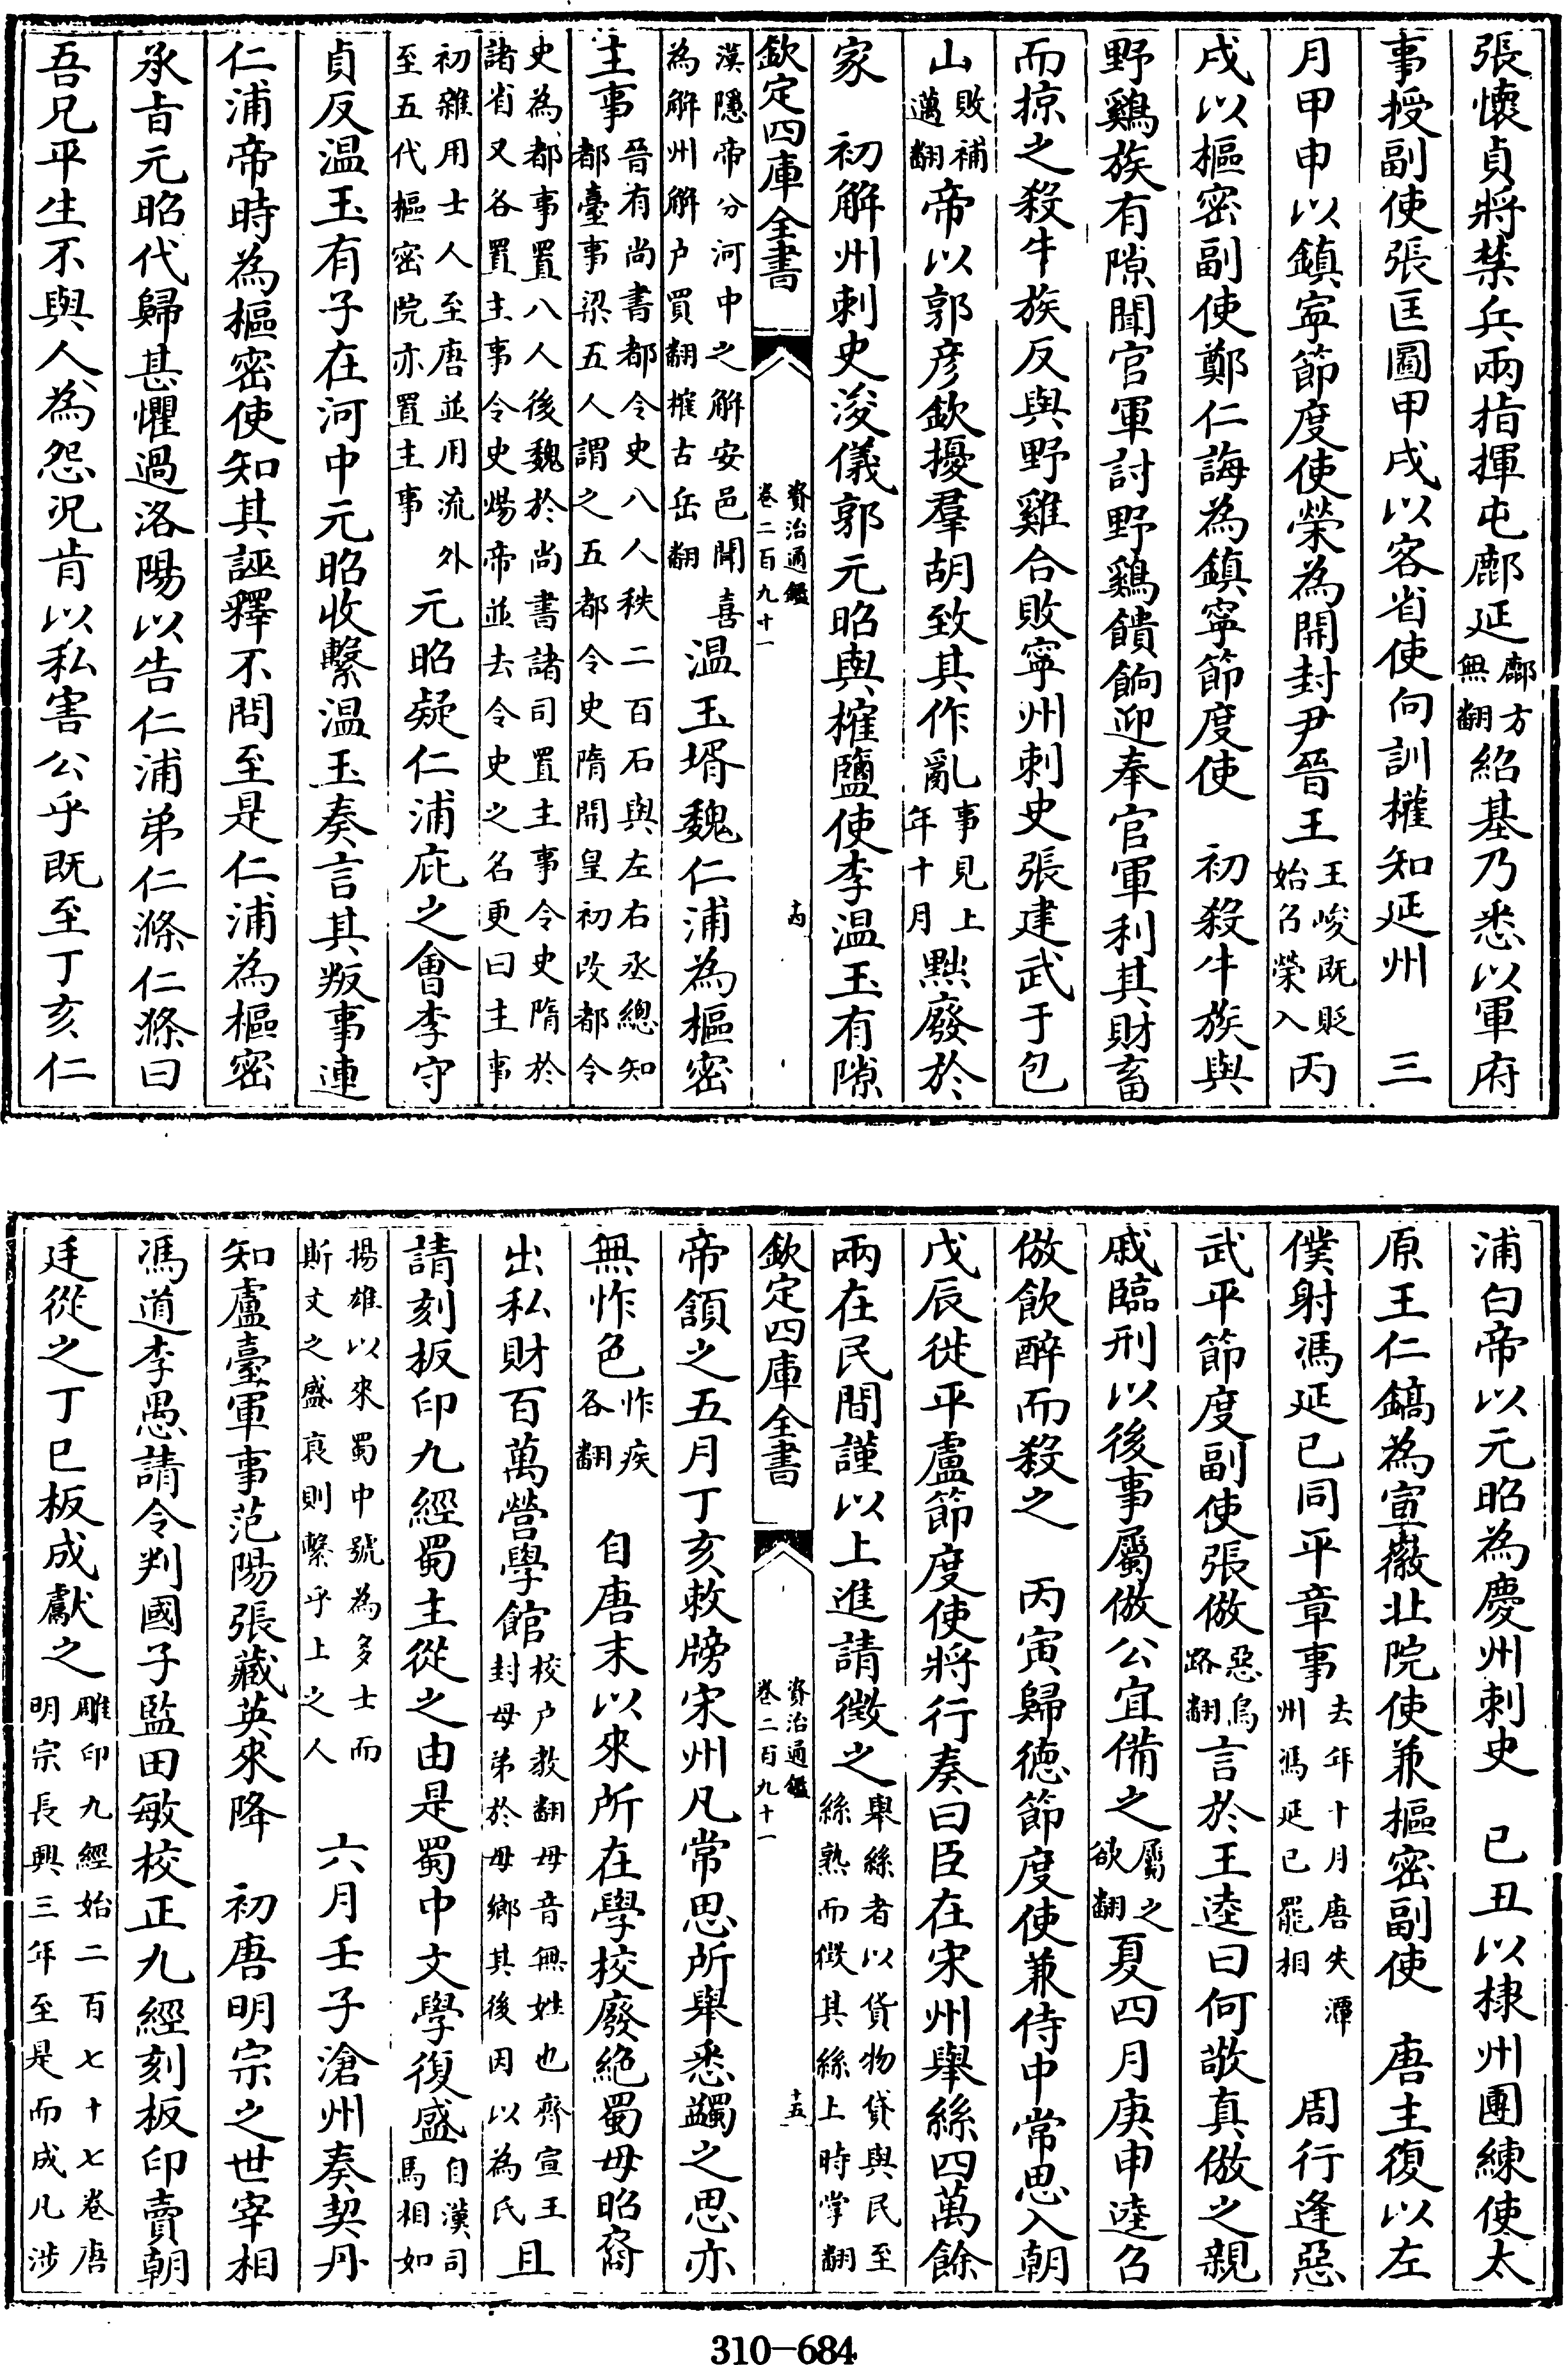 張懷貞將禁兵兩指揮屯鄜延鄜方無翻紹基乃悉以軍府
事授副使張匡圖甲戌以客省使向訓權知延州　三
月甲申以鎮寧節度使榮為開封尹晉王王峻既貶始召榮入丙
戌以樞密副使鄭仁誨為鎮寧節度使　初殺牛族與
野鷄族有隙聞官軍討野鷄饋餉迎奉官軍利其財畜
而掠之殺牛族反與野雞合敗寧州刺史張建武于包
山敗補邁翻帝以郭彦欽擾羣胡致其作亂事見上年十月黜廢於
家　初解州刺史浚儀郭元昭與榷鹽使李温玉有隙
欽定四庫全書　資治通鑑卷二百九十一　十四
漢隱帝分河中之解安邑聞喜為解州解户買翻榷古岳翻温玉壻魏仁浦為樞密
主事晉有尚書都令史八人秩二百石與左右丞總知都臺事梁五人謂之五都令史隋開皇初改都令
史為都事置八人後魏於尚書諸司置主事令史隋於諸省又各置主事令史煬帝並去令史之名更曰主事
初雜用士人至唐並用流外至五代樞密院亦置主事元昭疑仁浦庇之會李守
貞反温玉有子在河中元昭收繫温玉奏言其叛事連
仁浦帝時為樞密使知其誣釋不問至是仁浦為樞密
承旨元昭代歸甚懼過洛陽以告仁浦弟仁滌仁滌曰
吾兄平生不與人為怨況肯以私害公乎既至丁亥仁
浦白帝以元昭為慶州刺史　己丑以棣州團練使太
原王仁鎬為宣徽北院使兼樞密副使　唐主復以左
僕射馮延已同平章事去年十月唐失潭州馮延已罷相　周行逢惡
武平節度副使張倣惡烏路翻言於王逵曰何敬真倣之親
戚臨刑以後事屬倣公宜備之屬之欲翻夏四月庚申逵召
倣飲醉而殺之　丙寅歸德節度使兼侍中常思入朝
戊辰徙平盧節度使將行奏曰臣在宋州舉絲四萬餘
兩在民間謹以上進請徵之舉絲者以貨物貸與民至絲熟而徴其絲上時掌翻
欽定四庫全書　資治通鑑卷二百九十一　十五
帝頷之五月丁亥敕牓宋州凡常思所舉悉蠲之思亦
無怍色怍疾各翻　自唐末以來所在學校廢絶蜀毋昭裔
出私財百萬營學館校户教翻毋音無姓也齊宣王封母弟於毋鄉其後因以為氏且
請刻板印九經蜀主從之由是蜀中文學復盛自漢司馬相如
揚雄以來蜀中號為多士而斯文之盛衰則繫乎上之人　六月壬子滄州奏契丹
知盧臺軍事范陽張藏英來降　初唐明宗之世宰相
馮道李愚請令判國子監田敏校正九經刻板印賣朝
廷從之丁巳板成獻之雕印九經始二百七十七卷唐明宗長興三年至是而成凡涉
310-684